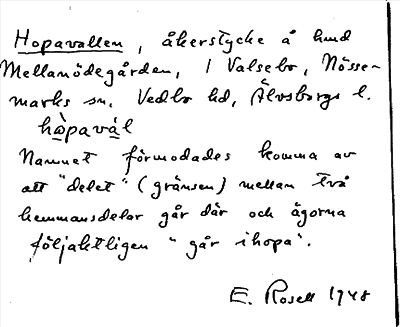 Hopavallen, åkerstycke å hmd
Mellanödegården, i Valsebo, Nösse-
marks sn. Vedbo hd, Älvsborgs l.
hòpavàl
Namnet förmodades komma av
att "delet" (gränsen) mellan två
hemmansdelar går där och ägorna
följaktligen "går ihopa".
E. Rosell 1948